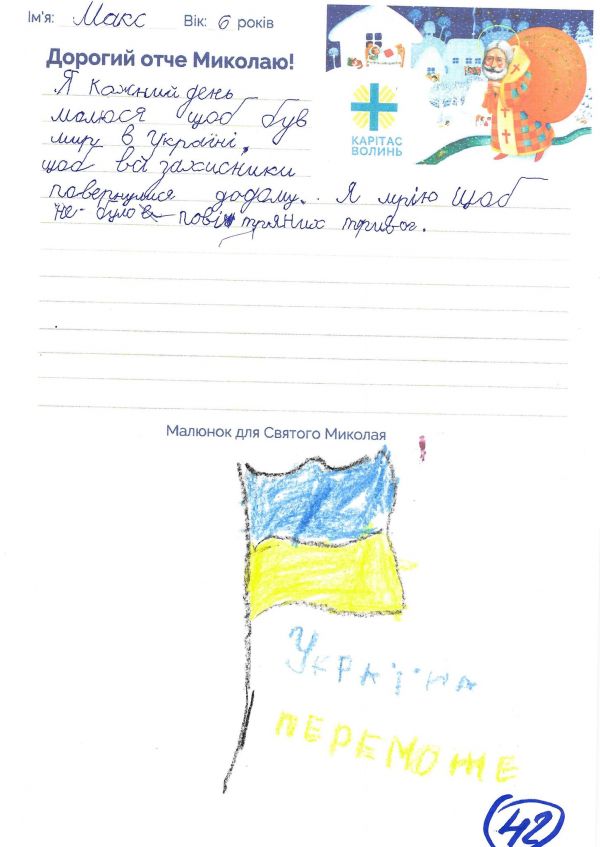 Ім'я: Макс Вік: 6 років
Дорогий отче Миколаю!
КАРІТАС
ВОЛИНЬ
Я кожний день
молюся щоб був
мир в Україні,
щоб всі захисники
повернулися додому. Я мрію щоб
не було повітряних тривог.
Малюнок для Святого Миколая
Україна
ПЕРЕМОЖЕ
42